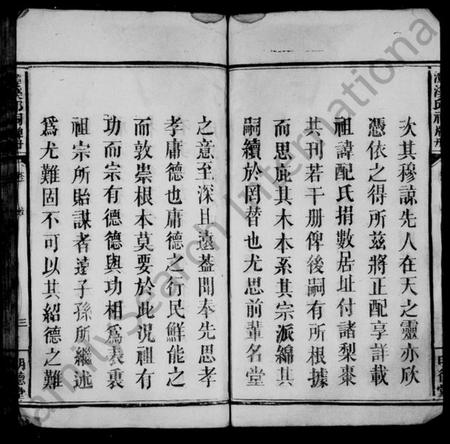 次其穆諒先人在天之靈亦欣
憑依之得所茲將正配享詳載
祖諱配氏捐數居址付諸梨棗
共刊若干册俾後嗣有所根據
而思庇其木本系其宗派綿其
嗣續於罔替也尤思前輩名堂
之意至深且遠蓋聞奉先思孝
孝庸德也庸德之行民鮮能之
而敦崇根本莫要於此况祖有
功而宗有德德與功相為表裏
祖宗所貽謀者遠子孫所繼述
為尤難固不可以其紹德之難
三
明德堂
FamilySearch International